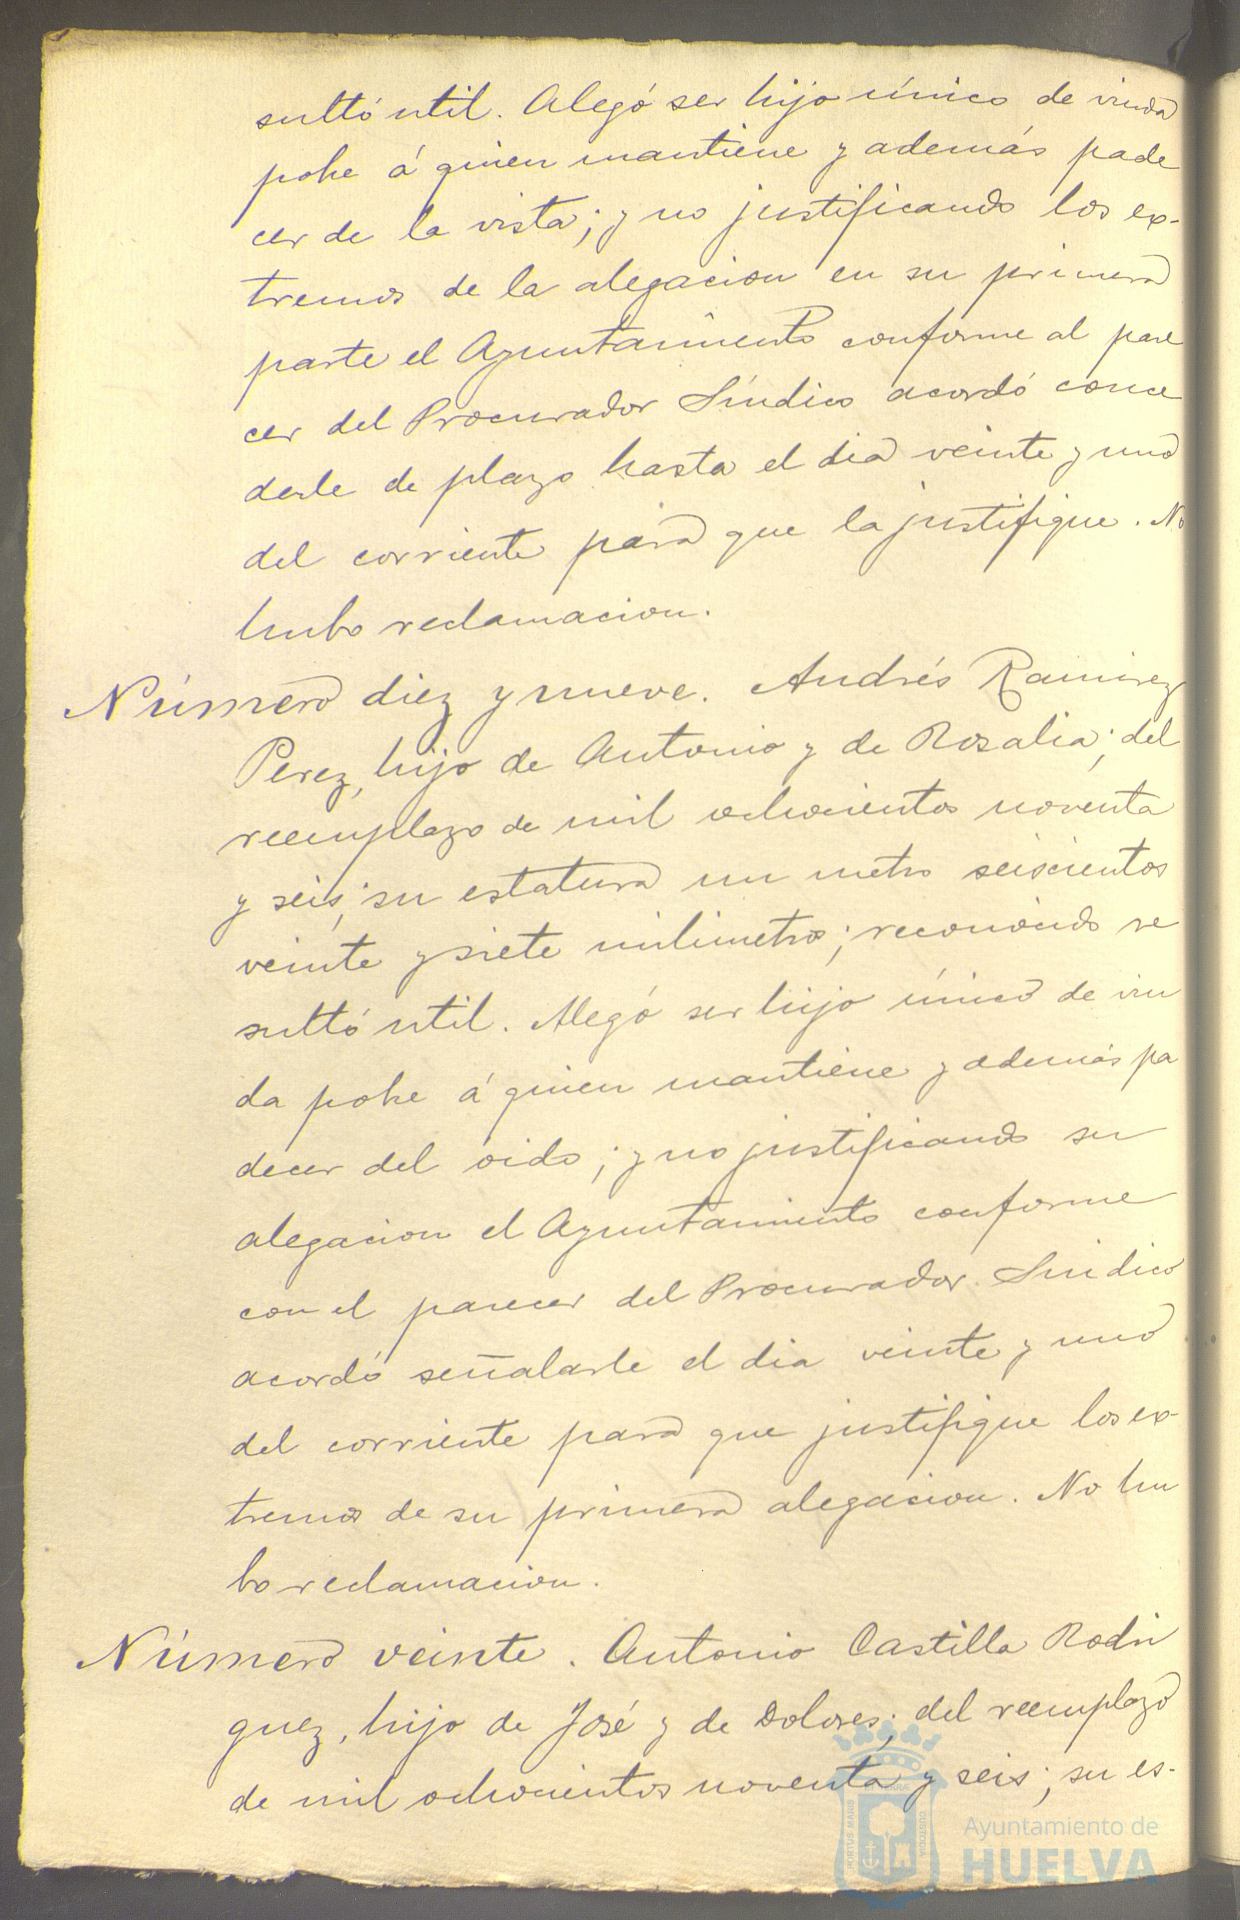 sultó util. Alegó ser hijo único de viuda
pobre á quien mantiene y además pade
cer de la vista; y no justificando los ex-
tremos de la alegacion en su primera
parte el Ayuntamiento conforme al pare
cer del Procurador Síndico acordó conce
derle de plazo hasta el dia veinte y uno
del corriente para que la justifique. No
hubo reclamacion.
Número diez y nueve. Andrés Ramirez
Perez, hijo de Antonio y de Rosalia; del
reemplazo de mil ochocientos noventa
y seis; su estatura un metro seiscientos
veinte y siete milimetros; reconocido re
sultó util. Alegó ser hijo único de viu
da pobre á quien mantiene y además pa
decer del oido; y no justificando su
alegacion el Ayuntamiento conforme
con el parecer del Procurador Sindico
acordó señalarle el dia veinte y uno
del corriente para que justifique los ex-
tremos de su primera alegacion. No hu
bo reclamacion.
Número veinte. Antonio Castilla Rodri
guez, hijo de José y de Dolores; del reemplazo
de mil ochocientos noventa y seis; su es-
PORTUS MARIS
ET TERRAE
CUSTODIA
Ayuntamiento de
HUELVA